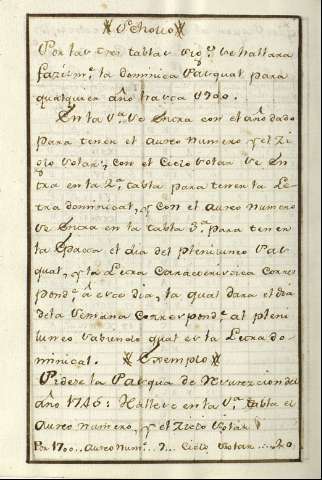 Scholio
Por las tres tablas sig.es se hallara
facilm.te la dominica Pasqual para
qualquier año hasta 1900.
En la 1.a se entra con el año dado
para tener el aureo numero y el Zi
clo solar; con el Ciclo solar se En
tra en la 2.a tabla para tener la Le
tra dominical, y con el aureo numero
se Entra en la tabla 3.a para tener
la Epacta el dia del plenilunio Pas
qual, y la Letra Caracteristica Corres
pond.te â este dia, la qual dara el dia
dela Semana Correspond.te al pleni
lunio sabiendo qual es la Letra do-
minical. Exemplo
Pidese la Pasqua de Resurreccion del
año 1746: Hallese en la 1.a tabla el
Aureo numero, y el Ziclo Solar
Por 1700.. Aureo Num.o .. 9... Ciclo Solar ...